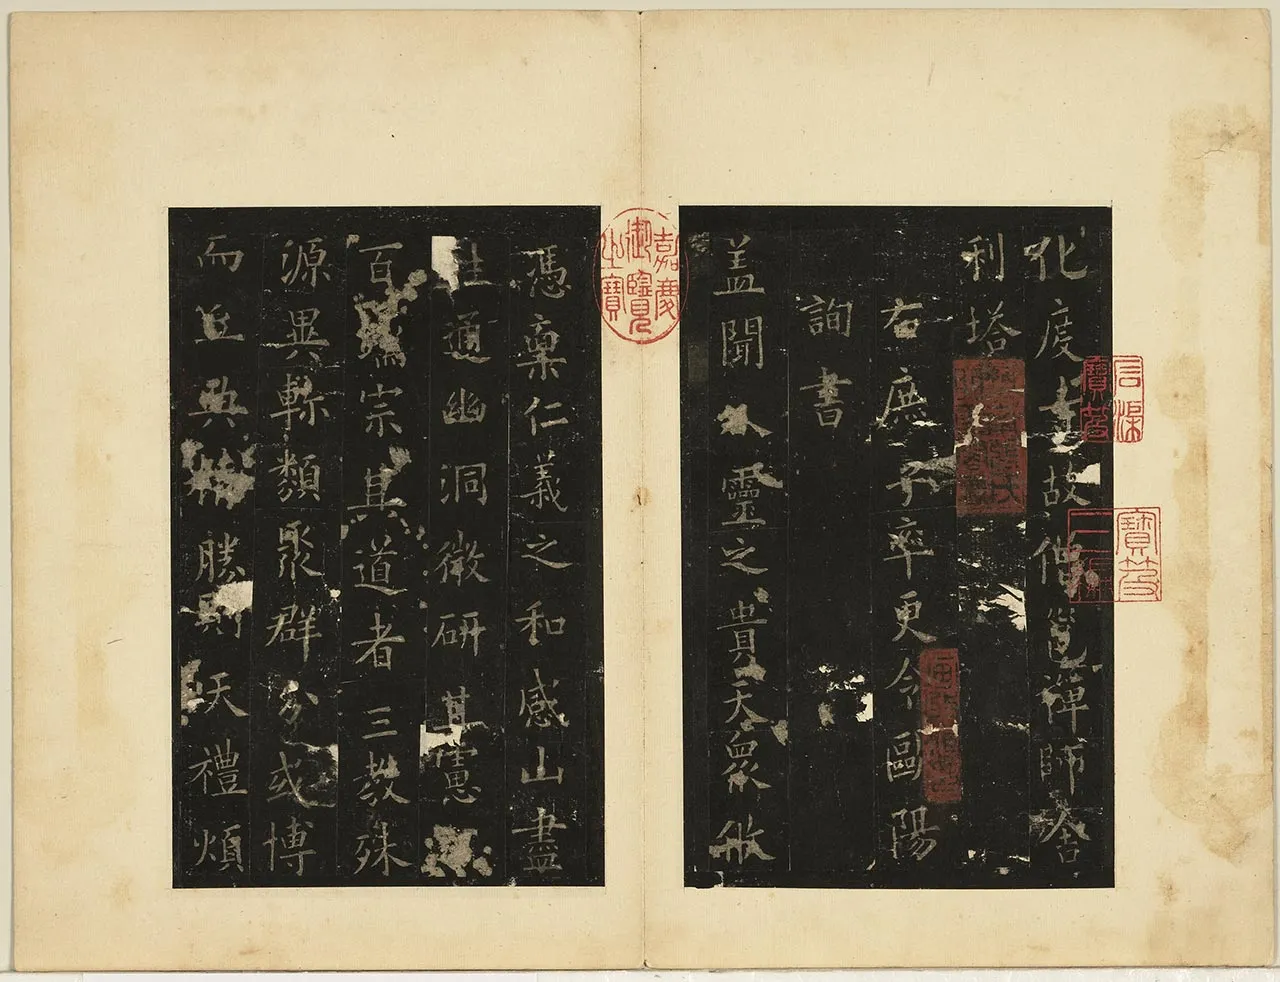 化度寺故僧邕禪師舍
利塔
右庶子率更令歐陽
詢書
蓋聞人靈之貴天象攸
嘉慶御覽之寶
石渠寶笈
寶笈三編
憑稟仁義之和感山盡
性通幽洞微研其慮
百端宗其道者三教殊
源異軫類聚群分或博
而勝則禮煩